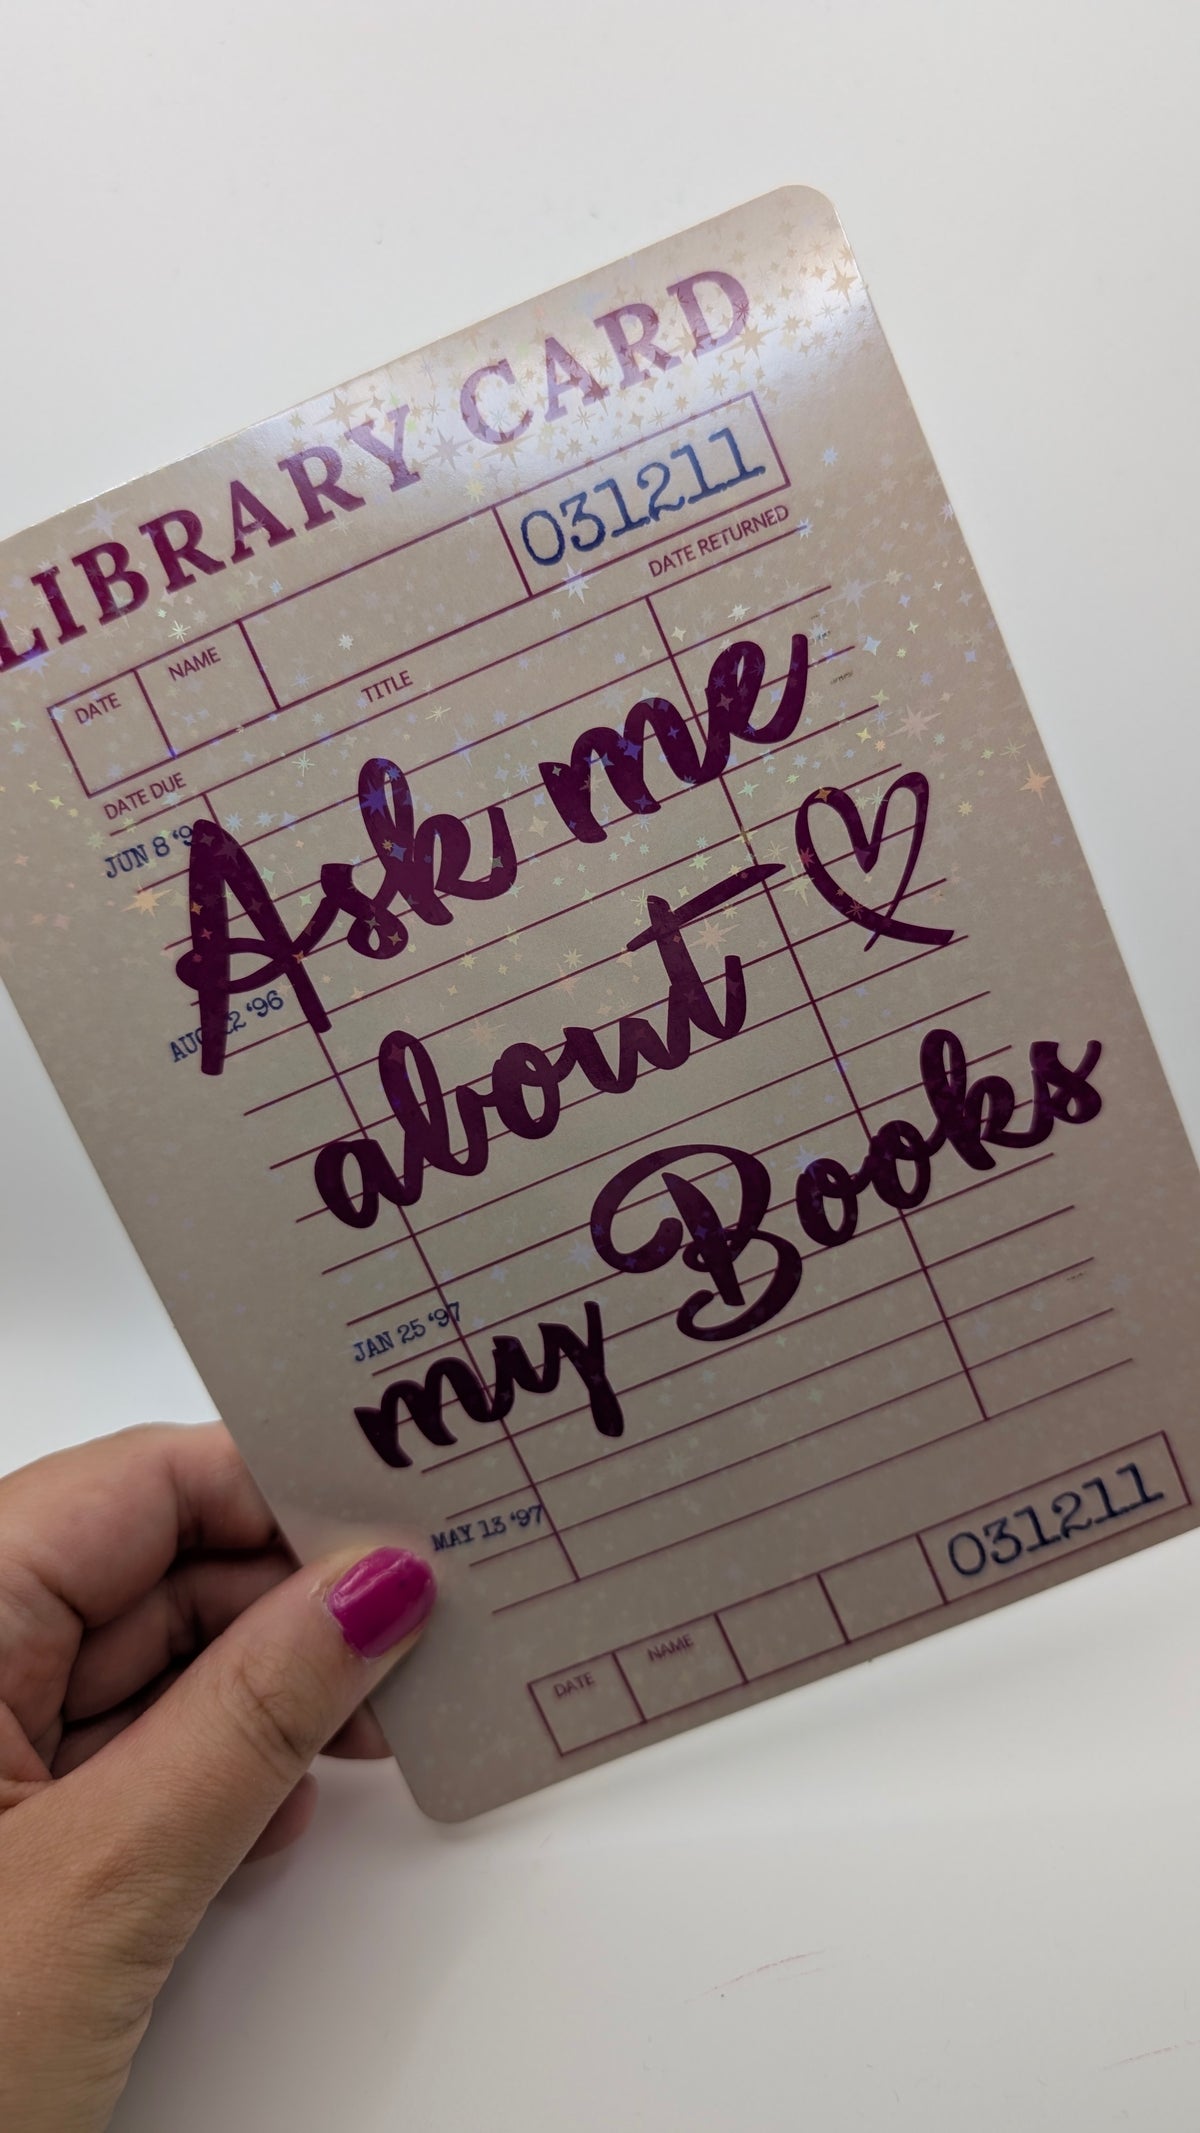 LIBRARY CARD
031211
DATE NAME
DATE DUE TITLE DATE RETURNED
JUN 8
Ask me
AUG 22 '96
about
my Books
JAN 25 '97
MAY 13 '97
DATE NAME 031211